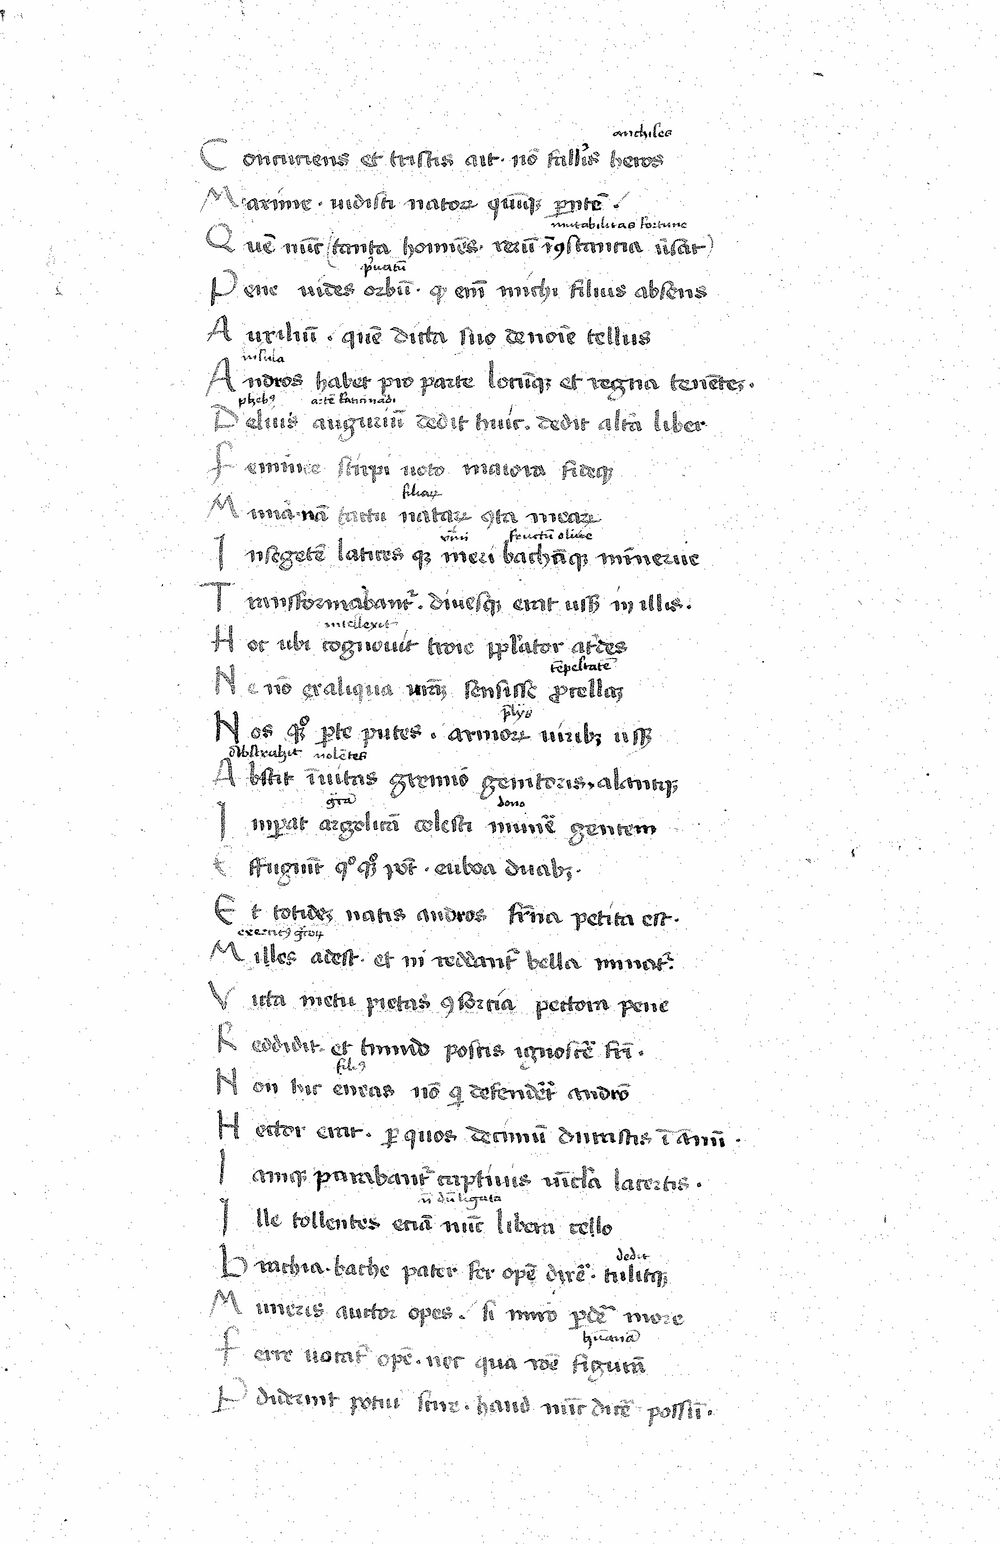 anchises
Concuciens et tristis ait · nō fall'is heros
Maxime · uidisti natoꝝ quīqꝫ pͣntē .
mutabilitas fortune
Quē nūc (tanta homines · rerū īꝯstancia uͤsat)
pͥuatū
Pene uides orbū · qͥ em̄ michi filius absens
Auxiliū . quē dicta suo de noīe tellus
insula
Andros habet pro parte locūqꝫ et regna tenētꝫ .
phebꝰ artē vaticinādi
Delius auguriū dedit huic . dedit altā liber
Feminee stirpi uoto maiora fideqꝫ
filiaꝝ
Munā . nā tactu nataꝝ ꝯta meaꝝ
vini fructū oliue
In segetē latices qꝫ meri bachāqꝫ minerue
Transformabantᷣ . diuesqꝫ erat usꝰ in illis .
intellexit
Hoc ubi cognouit troie ppl'ator atͥdes
tēpestatē
Ne nō ex aliqua urāꝫ sensisse ꝓcellaꝫ
pͣlijs
Nos qꝫ ꝑte putes . armoꝝ uiribꝫ usꝰ
abstrahit nolētes
Abstͣit īuitas gremio genitoris , alantqꝫ
grͣcā dono
Imꝑat argolicā celesti munē gentem
Effugiūt qͦ qꝫ pōt . euboa duabꝫ .
Et totidē natis andros frͣna petita est .
exercitꝰ grͦꝝ
Milles adest . et ni reddantᷣ bella minatᷣ .
Victa metu pietas ꝯsorcia pectora pene
Reddidit . et timido poscis ignoscē frī .
filiꝰ
Non hic eneas nō qͥ defenderᷣt andrō
Hector erat . ꝑ quos decimū durastis ī ānū .
Iamqꝫ parabantᷣ captiuis uīcl'a lacertis .
n̄ dū ligata
Ille tollentes eciā nūc libera cello
dedit
Brachia . bache pater fer opē dixeᷣ . tulitqꝫ
Muneris auctor opes . si miro ꝑdeͤ more
humanā
Ferre uocatᷣ opē . nec qua rōe figurā
Pdiderint potui scire . haud nūc dicē possū .